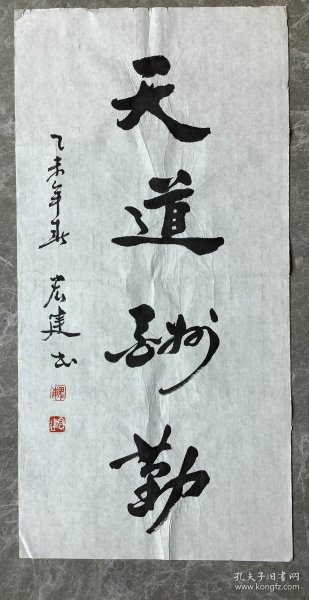 天道酬勤
乙未年春 宏建书
孔夫子旧书网
www.kongfz.com